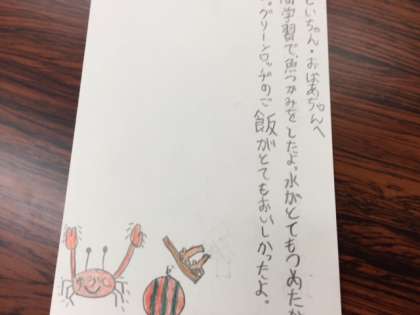 じいちゃん・おばあちゃんへ
学習で、魚つかみをしたよ。水がとてもつめたか
。グリーンロッヂのご飯がとてもおいしかったよ。